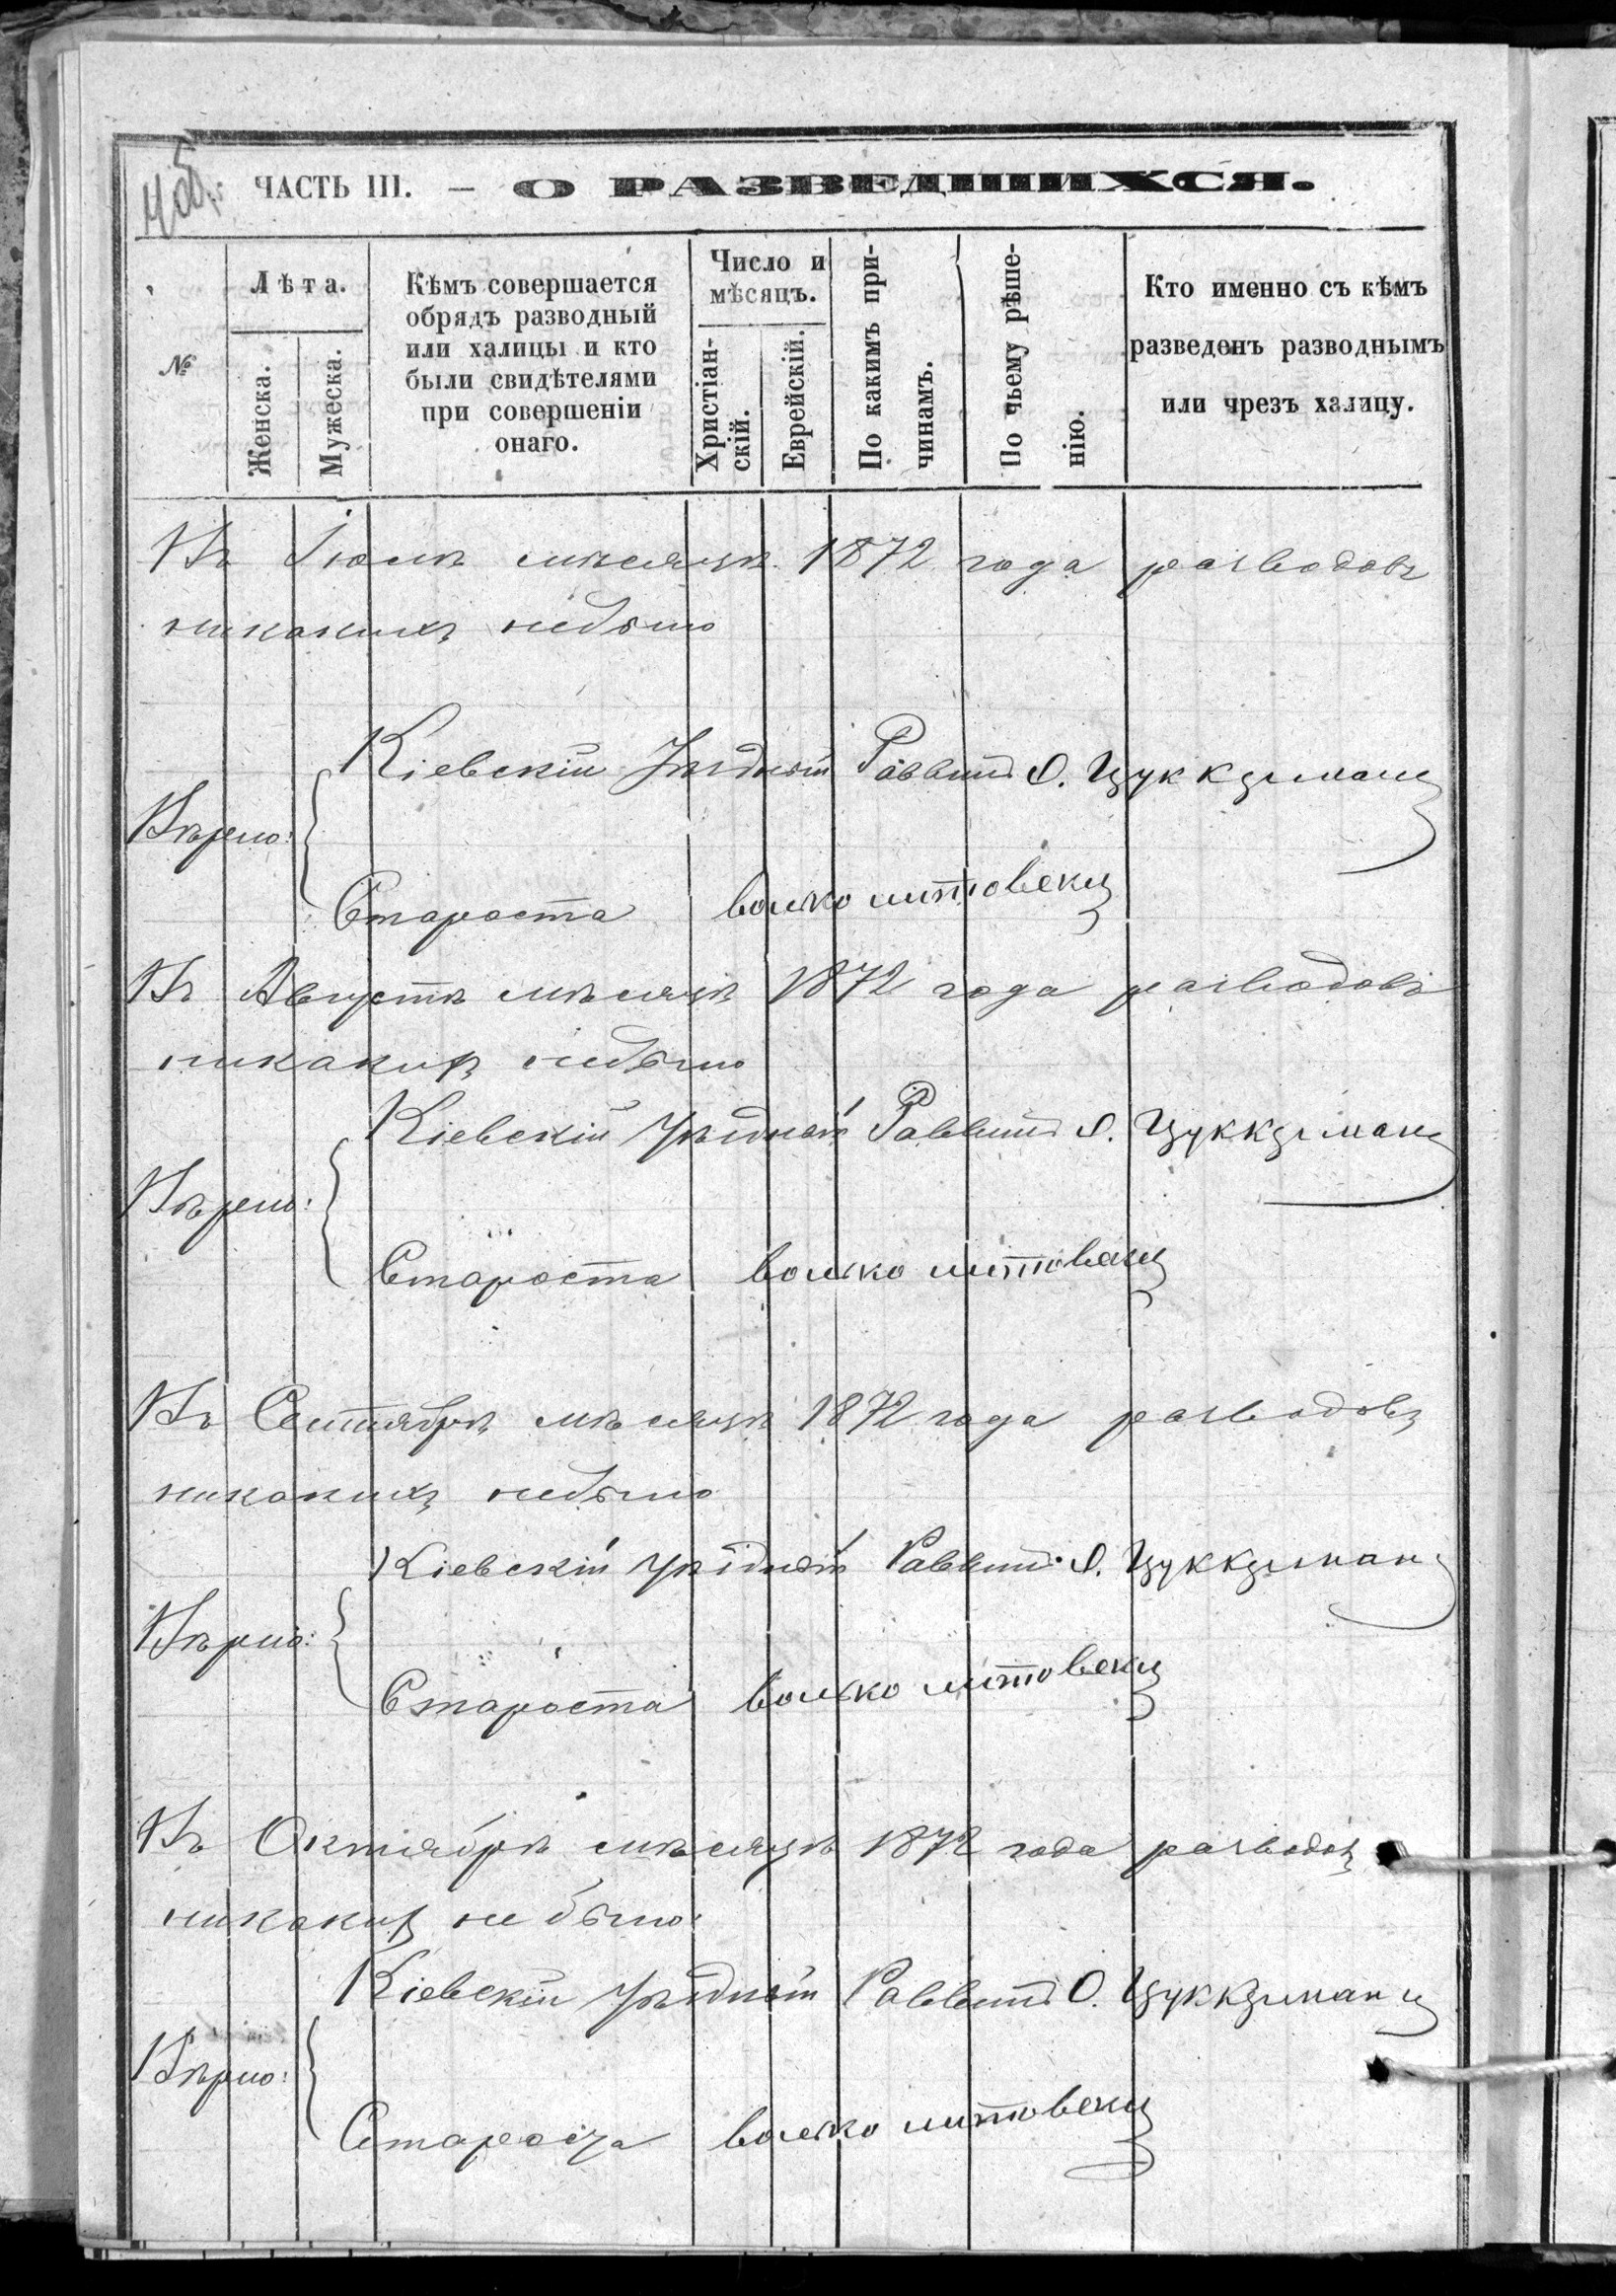 4 об.
ЧАСТЬ III. — О РАЗВЕДШИХСЯ.
№
Лѣта.
Женска.
Мужеска.
Кѣмъ совершается
обрядъ разводный
или халицы и кто
были свидѣтелями
при совершеніи
онаго.
Число и
мѣсяцъ.
Христіан-
скій.
Еврейскій.
По какимъ при-
чинамъ.
По чьему рѣше-
нію.
Кто именно съ кѣмъ
разведенъ разводнымъ
или чрезъ халицу.
Въ Іюлѣ мѣсяцѣ 1872 года разводовъ
никакихъ небыло
Кіевскій Уѣздный Раввинъ О. Цуккерманъ
Вѣрно:
Староста волько литовецъ
Въ Августѣ мѣсяцѣ 1872 года разводовъ
никакихъ небыло
Кіевскій Уѣздный Раввинъ О. Цуккерманъ
Вѣрно:
Староста волько литовецъ
Въ Сентябрѣ мѣсяцѣ 1872 года разводовъ
никакихъ небыло
Кіевскій Уѣздный Раввинъ О. Цуккерманъ
Вѣрно:
Староста волько литовецъ
Въ Октябрѣ мѣсяцѣ 1872 года разводовъ
никакихъ не было
Кіевскій Уѣздный Раввинъ О. Цуккерманъ
Вѣрно:
Староста волько литовецъ